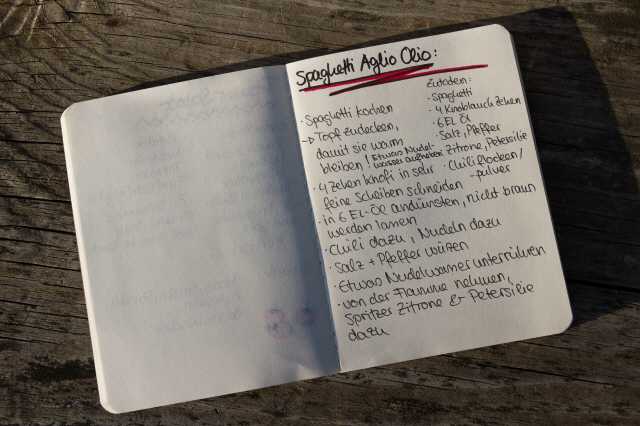 Spaghetti Aglio Olio:
Zutaten:
· Spaghetti
· 4 Knoblauchzehen
· 6 EL Öl
· Salz, Pfeffer
· Zitrone, Petersilie
· Chiliflocken/
-pulver
· Spaghetti kochen
→ Topf zudecken,
damit sie warm
bleiben! Etwas Nudel-
wasser aufheben
· 4 Zehen Knofi in sehr
feine Scheiben schneiden
· in 6 EL-Öl andünsten, nicht braun
werden lassen
· Chili dazu, Nudeln dazu
· Salz + Pfeffer würzen
· Etwas Nudelwasser unterrühren
· von der Flamme nehmen,
Spritzer Zitrone & Petersilie
dazu